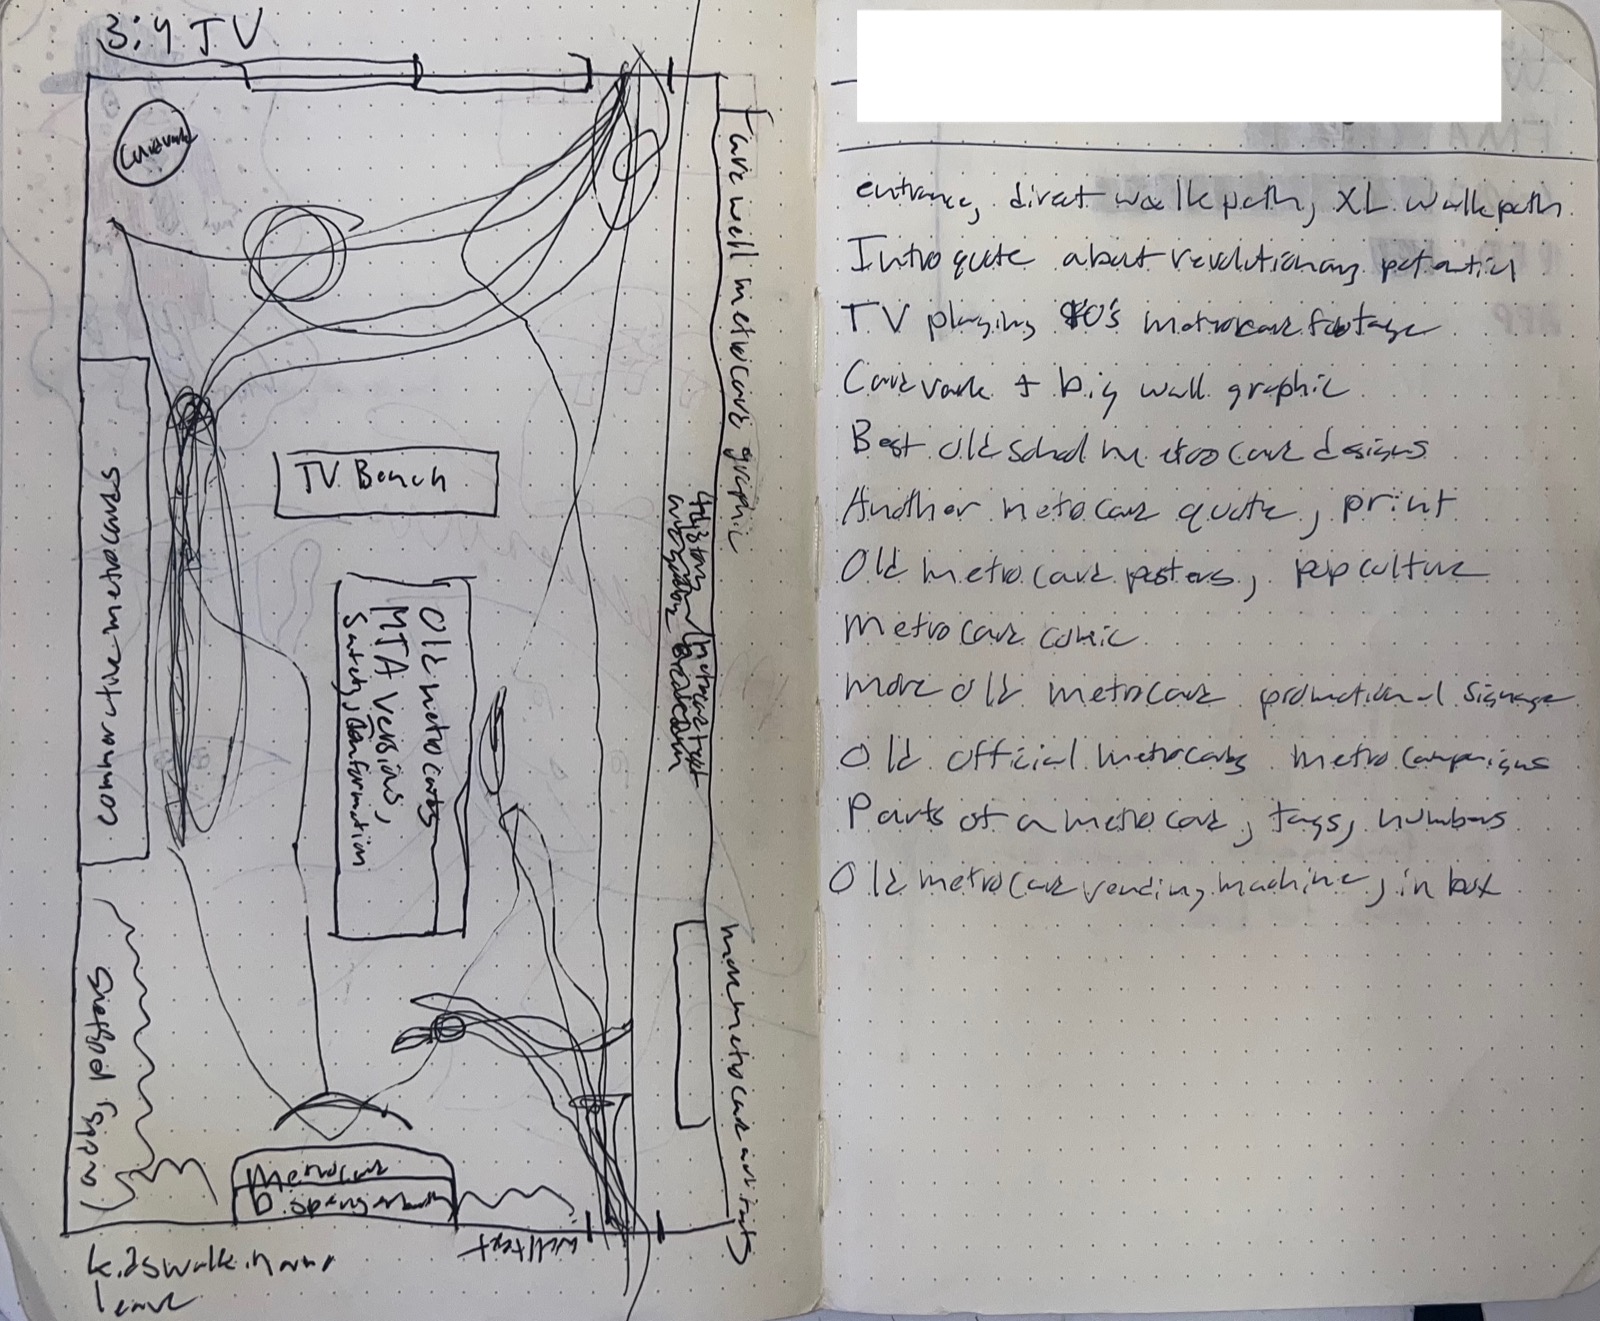 3:4 TV
Farewell metrocard graphic
TV Bench
commorative metrocards
Old metrocards
MTA Versions,
Safety, information
History
Breakdown
more metrocard artifacts
posters
Metrocard
Dispensing
Wall text
kids walk in and
leave
entrance, direct walkpath, XL walkpath
Intro quote about revolutionary potential
TV playing 80's metrocard footage
Cardvark + big wall graphic
Best old school metrocard designs
Another metrocard quote, print
Old metrocard posters, pop culture
Metrocard comic
More old metrocard promotional signage
Old official metrocards metro campaigns
Parts of a metrocard, tags, numbers
Old metrocard vending machine, in box